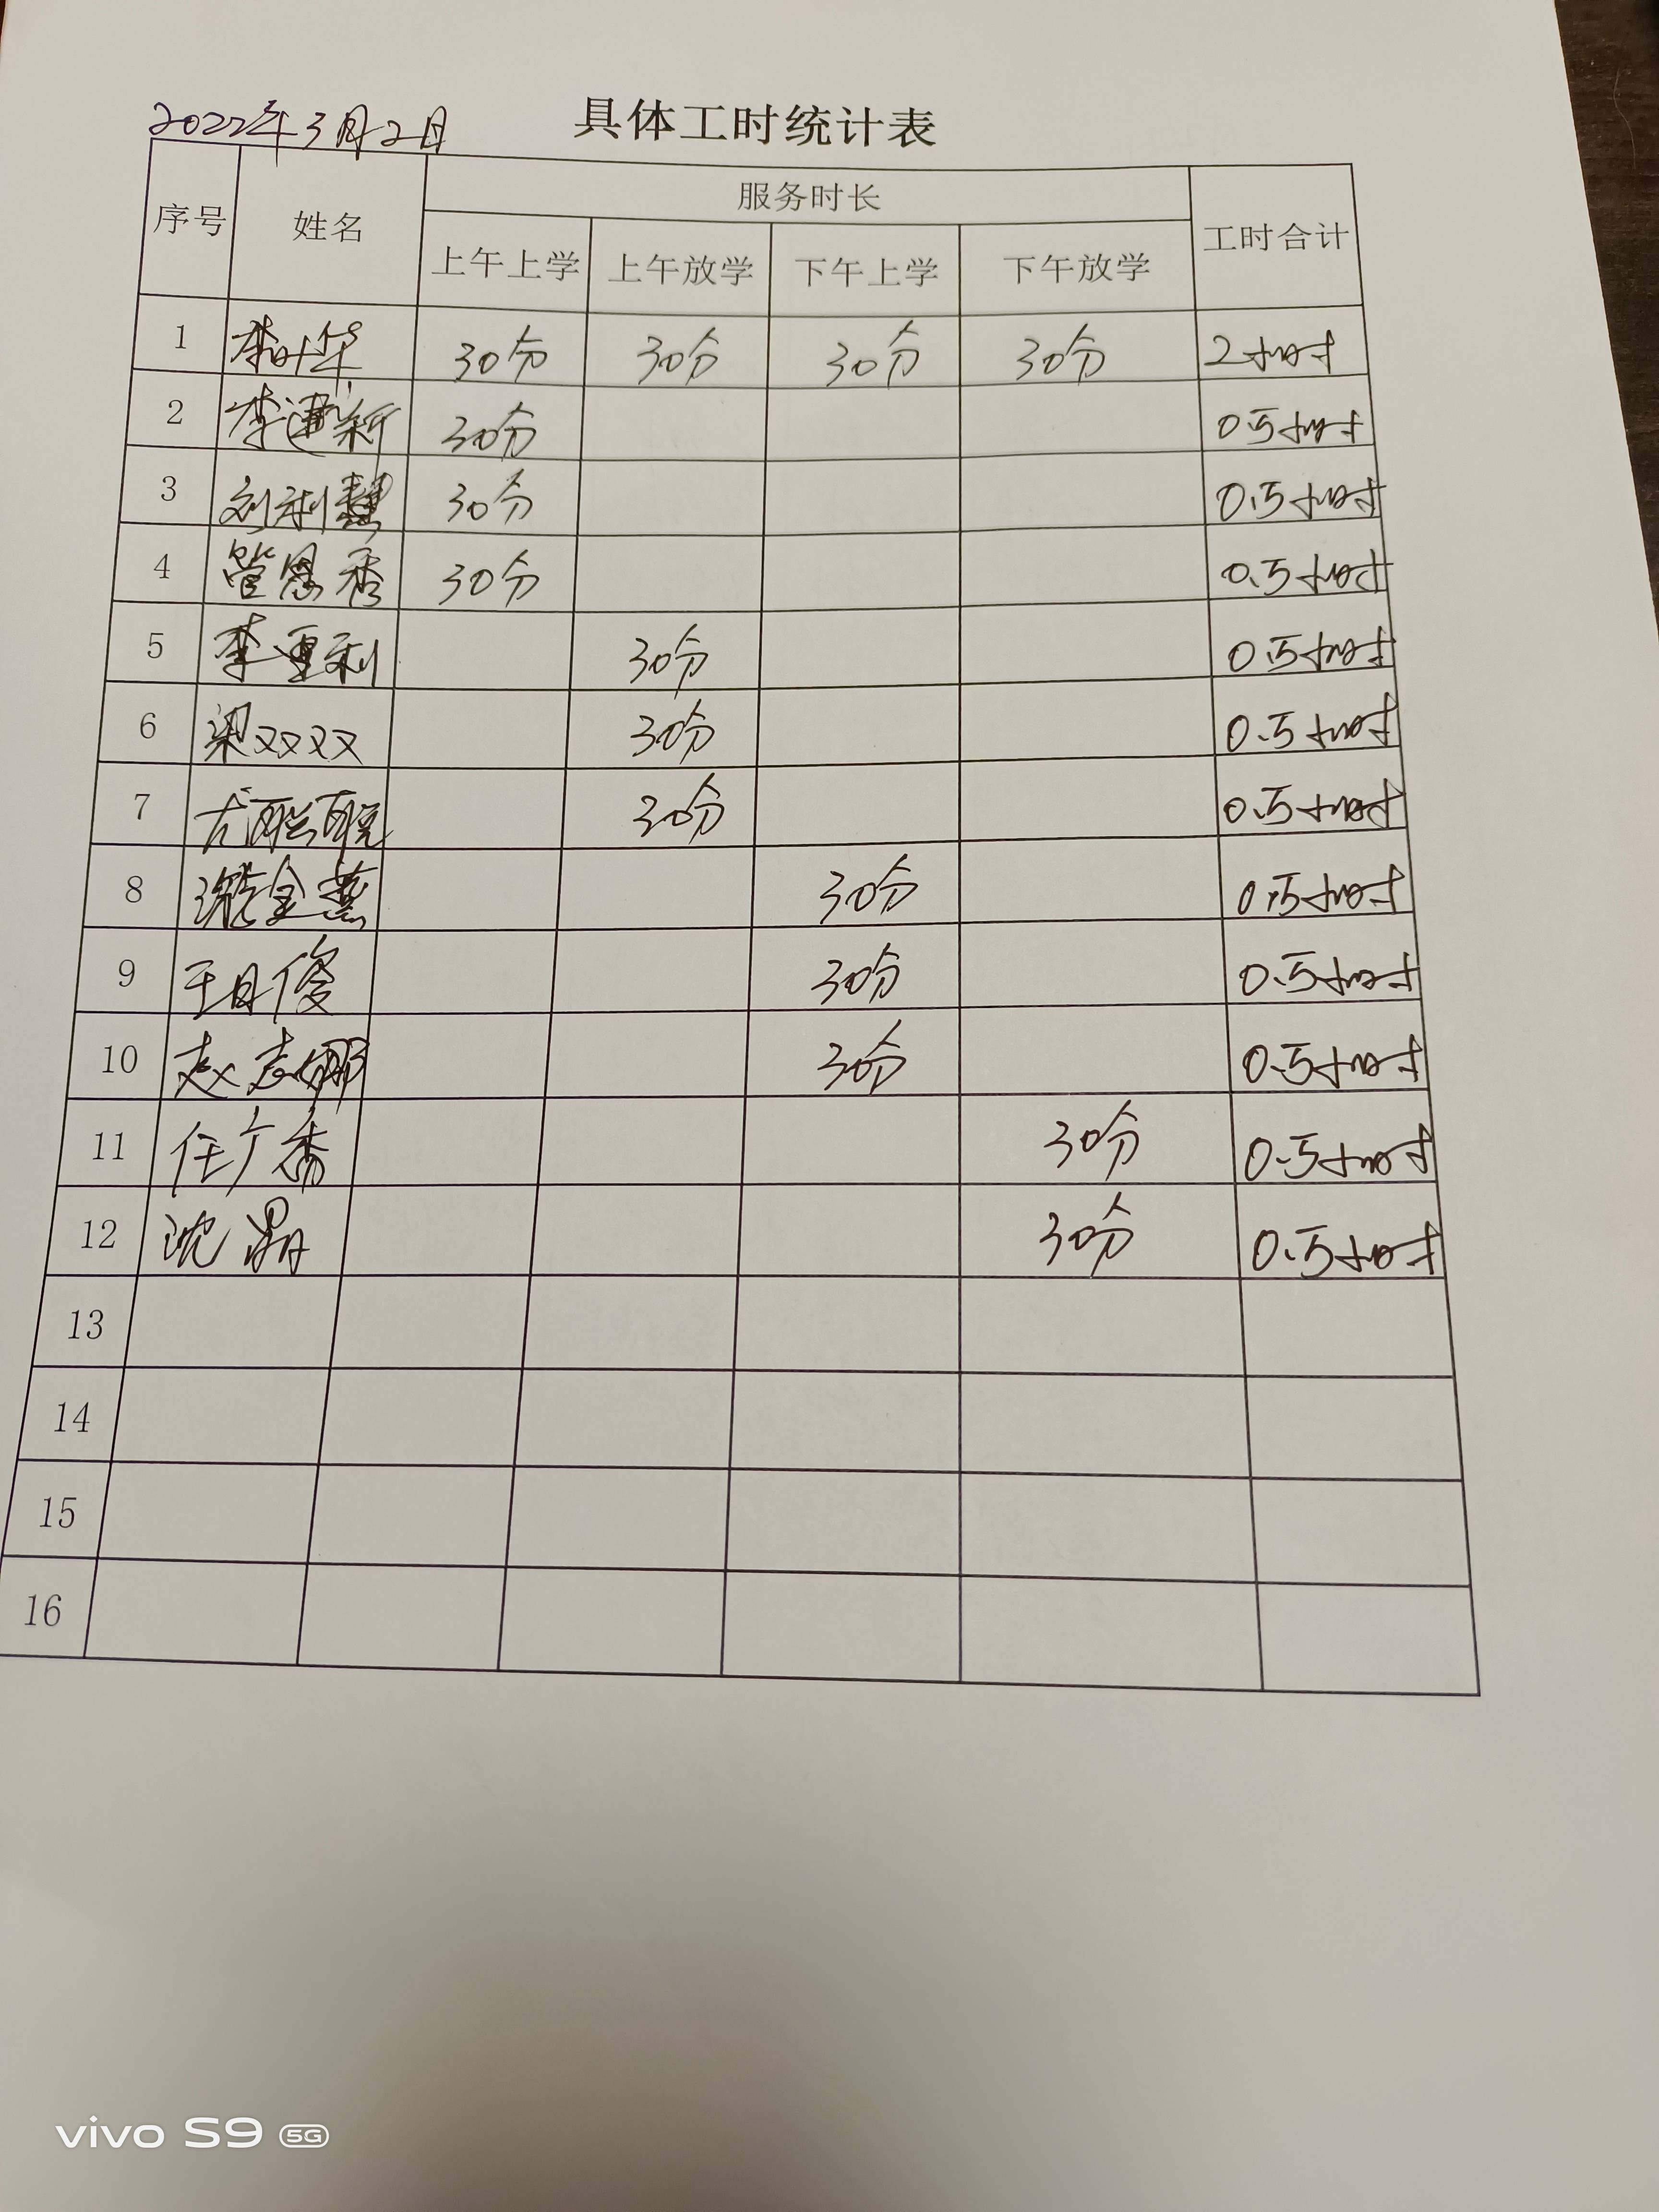 2022年3月2日 具体工时统计表
序号 姓名 服务时长 工时合计
上午上学 上午放学 下午上学 下午放学
1 李叶华 30分 30分 30分 30分 2小时
2 李建新 30分 0.5小时
3 刘利慧 30分 0.5小时
4 管恩香 30分 0.5小时
5 李亚利 30分 0.5小时
6 梁双双 30分 0.5小时
7 尤聪聪 30分 0.5小时
8 金燕 30分 0.5小时
9 王月俊 30分 0.5小时
10 赵志娜 30分 0.5小时
11 任广秀 30分 0.5小时
12 沈晶 30分 0.5小时
13
14
15
16
vivo S9 5G